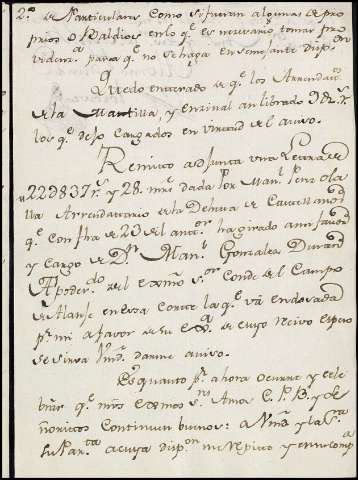 2.º de Particulares como si fueran algunas de pro
pios o Valdios en lo q.e es necesario tomar pro
videnz.a para q.e no se haga en semejante disp.on
Quedo enterado de q.e los Arrendat.s
de la Mantilla, y enzinal an librado 9 d r.s v.n
los q.e dejo cargados en virtud del aviso.
Remito adjunta una Letra de
22D837 r.s y 28 mrs dada por Man.l Perez ola
lla Arrendatario de la Dehesa de
q.e con fha de 23 del ant.or ha girado a mi favor
y cargo de D.n Man.l Gonzalez Durand
Apoder.do del Exmo S.or Conde del Campo
de Alanje en esta Corte la q.e vá endosada
p.r mi a favor de su Ex.a de cuyo recivo espero
se sirva Vmd. darme aviso.
Es quanto p.r ahora ocurre y cele
brare q.e mis Exmos S.res Amos C. P. B. y de
Continuen buenos: a Vmd y la S.ra
su Par.ta a cuya disp.on me repito y en su comp.a